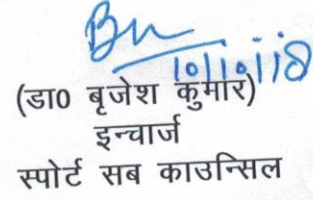 10/10/18
(डा0 बृजेश कुमार)
इन्चार्ज
स्पोर्ट सब काउन्सिल